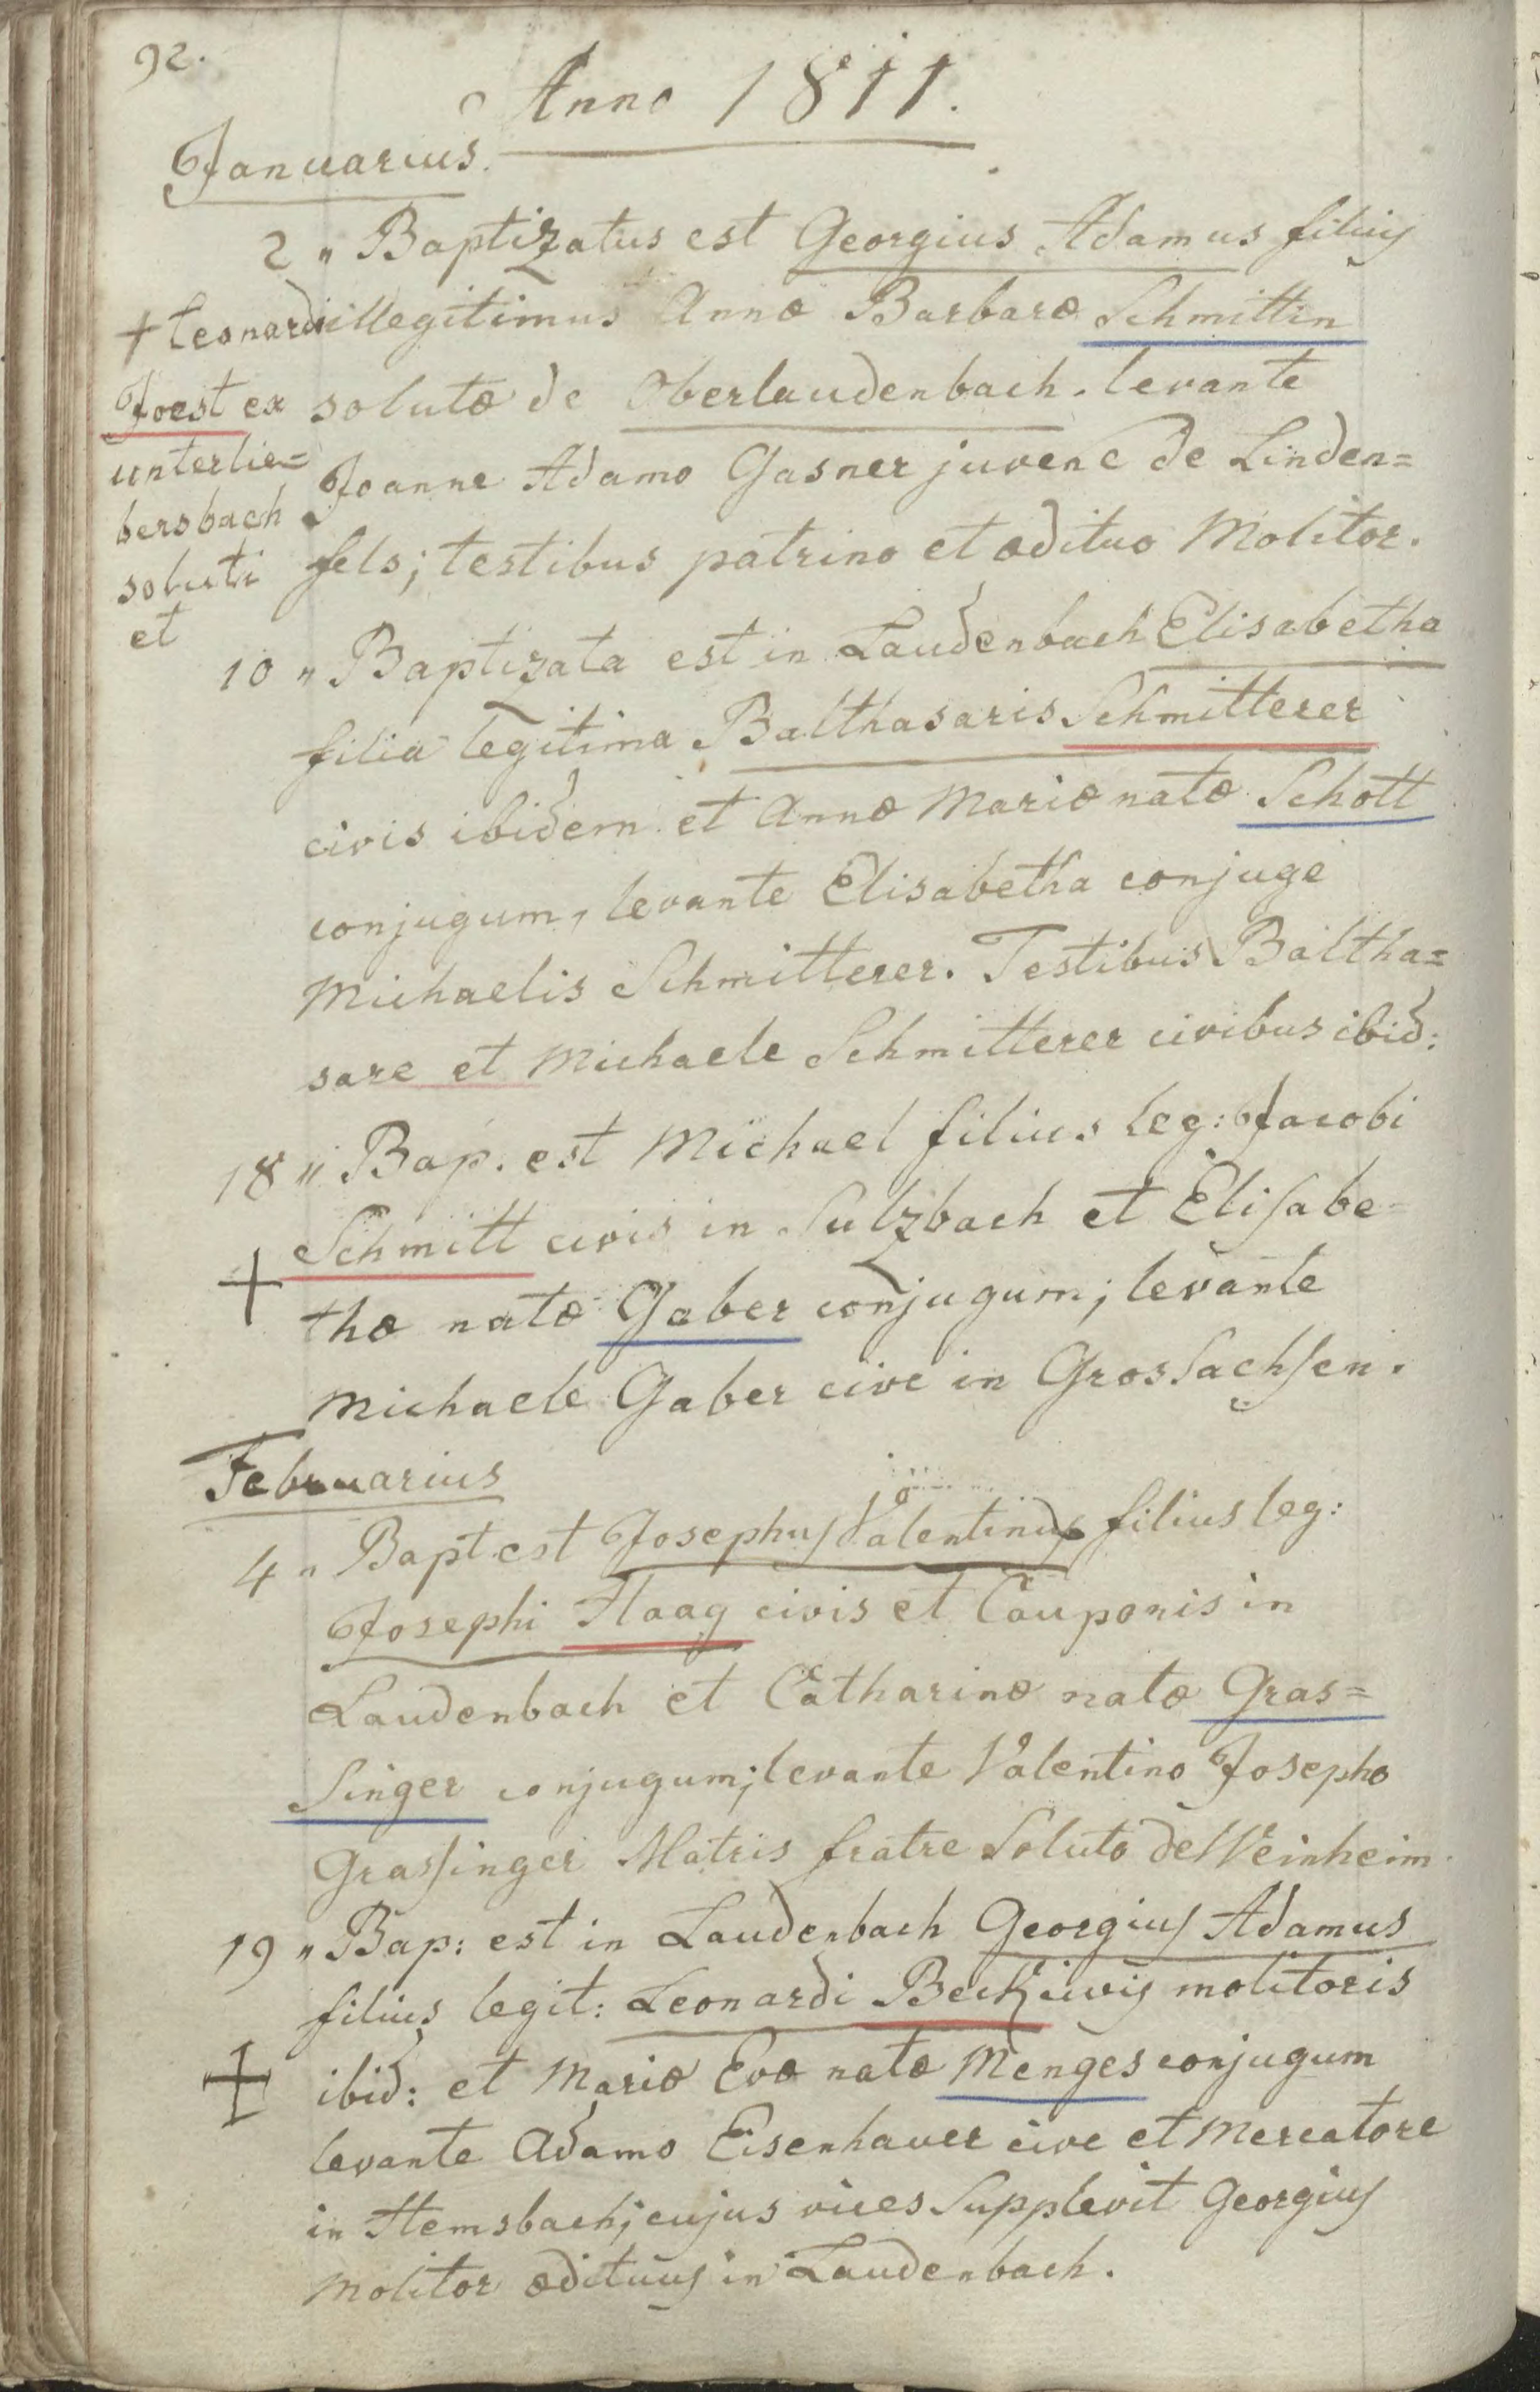 92.
Anno 1811.
Januarius.
2 „ Baptizatus est Georgius Adamus filius
illegitimus Annæ Barbaræ Schmittin
solutæ de Oberlaudenbach. levante
Joanne Adamo Gasner juvene de Linden=
fels; testibus patrino et ædituo Molitor.
+ Leonardi
Joest ex
unterlie=
bersbach
soluti
et
10 „ Baptizata est in Laudenbach Elisabetha
filia legitima Balthasaris Schmitterer
civis ibidem et Annæ Mariæ natæ Schott
conjugum, levante Elisabetha conjuge
Michaelis Schmitterer. Testibus Baltha=
sare et Michaele Schmitterer civibus ibid:
18 „ Bap. est Michael filius leg: Jacobi
Schmitt civis in Sulzbach et Elisabe=
+
thæ natæ Gaber conjugum; levante
Michaele Gaber cive in GrosSachsen.
Februarius
4 „ Bapt. est Josephus Valentinus filius leg:
Josephi Haag civis et Cauponis in
Laudenbach et Catharinæ natæ Gras=
Singer conjugum; levante Valentino Josepho
Grassinger Matris fratre Soluto de Weinheim.
19 „ Bap: est in Laudenbach Georgius Adamus
filius legit: Leonardi Beck civis molitoris
+
ibid: et Mariæ Evæ natæ Menges conjugum
levante Adamo Eisenhauer cive et Mercatore
in Hemsbach; cujus vices Supplevit Georgius
Molitor ædituus in Laudenbach.